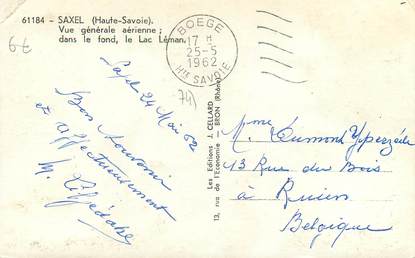 61184 - SAXEL (Haute-Savoie).
Vue générale aérienne ;
dans le fond, le Lac Léman.
6€
BOEGE
17 H
25-5
1962
Hte SAVOIE
(74)
Saxel 24 Mai 62
Bon souvenir
et affectueusement
M.
Les Editions J. CELLARD
13, rue de l'Economie - BRON (Rhône)
Mme Dumond Yperzeele
13 Rue du Bois
à
Belgique